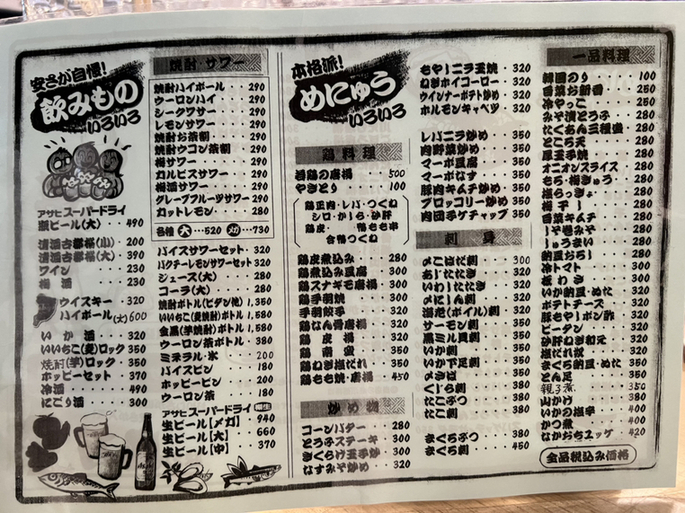 安さが自慢!
飲みもの
いろいろ
アサヒスーパードライ
瓶ビール(大)・490
清酒古都福(小)・200
清酒古都福(大)・390
ワイン・・230
梅酒・・230
ウイスキー・320
ハイボール(大)600
いか酒・・320
いいちこ(麦)ロック・350
焼酎(芋)ロック・350
ホッピーセット・370
冷酒・・490
にごり酒・300
焼酎・サワー
焼酎ハイボール・290
ウーロンハイ・290
シークワサー・290
レモンサワー・290
焼酎お茶割・290
焼酎ウコン茶割・290
梅サワー・290
カルピスサワー・290
梅酒サワー・290
グレープフルーツサワー・290
カットレモン・280
各種(大)・・520 (メガ)・・730
バイスサワーセット・320
パクチーレモンサワーセット・320
ジュース(大)・280
コーラ(大)・280
焼酎ボトル(ビタン他)・1,350
いいちこ(麦焼酎)ボトル・1,580
金黒(芋焼酎)ボトル・1,580
ウーロン茶ボトル・380
ミネラル・氷・200
バイスビン・180
ホッピービン・200
ウーロン茶・180
アサヒスーパードライ
生ビール【メガ】・940
生ビール【大】・660
生ビール【中】・370
本格派!
めにゅう
いろいろ
鶏料理
若鶏の唐揚・500
やきとり・100
鶏正肉・レバ・つくね
シロ・かしら・砂肝
鶏皮・鴨もも串
合鴨つくね
鶏皮煮込み・280
鶏煮込み豆腐・300
鶏スナギモ唐揚・300
鶏手羽焼・300
手羽餃子・320
鶏なん骨唐揚・320
鶏皮揚・320
鶏南蛮・350
鶏ねぎ塩だれ・350
鶏もも焼・唐揚・450
炒め物
コーンバター・280
とうふステーキ・300
きくらげ玉手炒・300
なすみそ炒め・320
もやしニラ玉焼・320
ねぎホイコーロー・320
ウインナーポテト炒め・320
ホルモンキャベツ・320
レバニラ炒め・350
肉野菜炒め・350
マーボ豆腐・350
マーボなす・350
豚肉キムチ炒め・350
ブロッコリー炒め・350
肉団子ケチャップ・350
刺身
〆こはだ刺・300
あじたたき・320
いわしたたき・320
〆にしん刺・320
海老(ボイル)刺・320
サーモン刺・350
黒ミル貝刺・350
いか刺・350
いか下足刺・350
〆さば・350
くじら刺・380
たこぶつ・380
たこ刺・380
まぐろぶつ・380
まぐろ刺・450
一品料理
韓国のり・100
白菜お新香・250
冷やっこ・250
みそ漬とうふ・280
たくあん三種盛・280
ところ天・280
厚玉子焼・280
オニオンスライス・280
もち・梅きゅう・280
塩らっきょ・280
梅干し・280
白菜キムチ・280
しそ巻みそ・280
しゅうまい・280
納豆おろし・280
冷トマト・300
板わさ・300
いか納豆・ぬた・320
ポテトチーズ・320
豚もやしポン酢・320
ピータン・320
砂肝ねぎ和え・320
塩だれ奴・320
まぐろ納豆・ぬた・350
とん足・350
親子煮・350
山かけ・380
いかの塩辛・400
かつ煮・400
なかおちユッケ・420
全品税込み価格